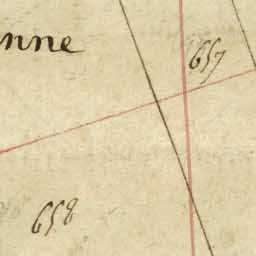 nne
657
658